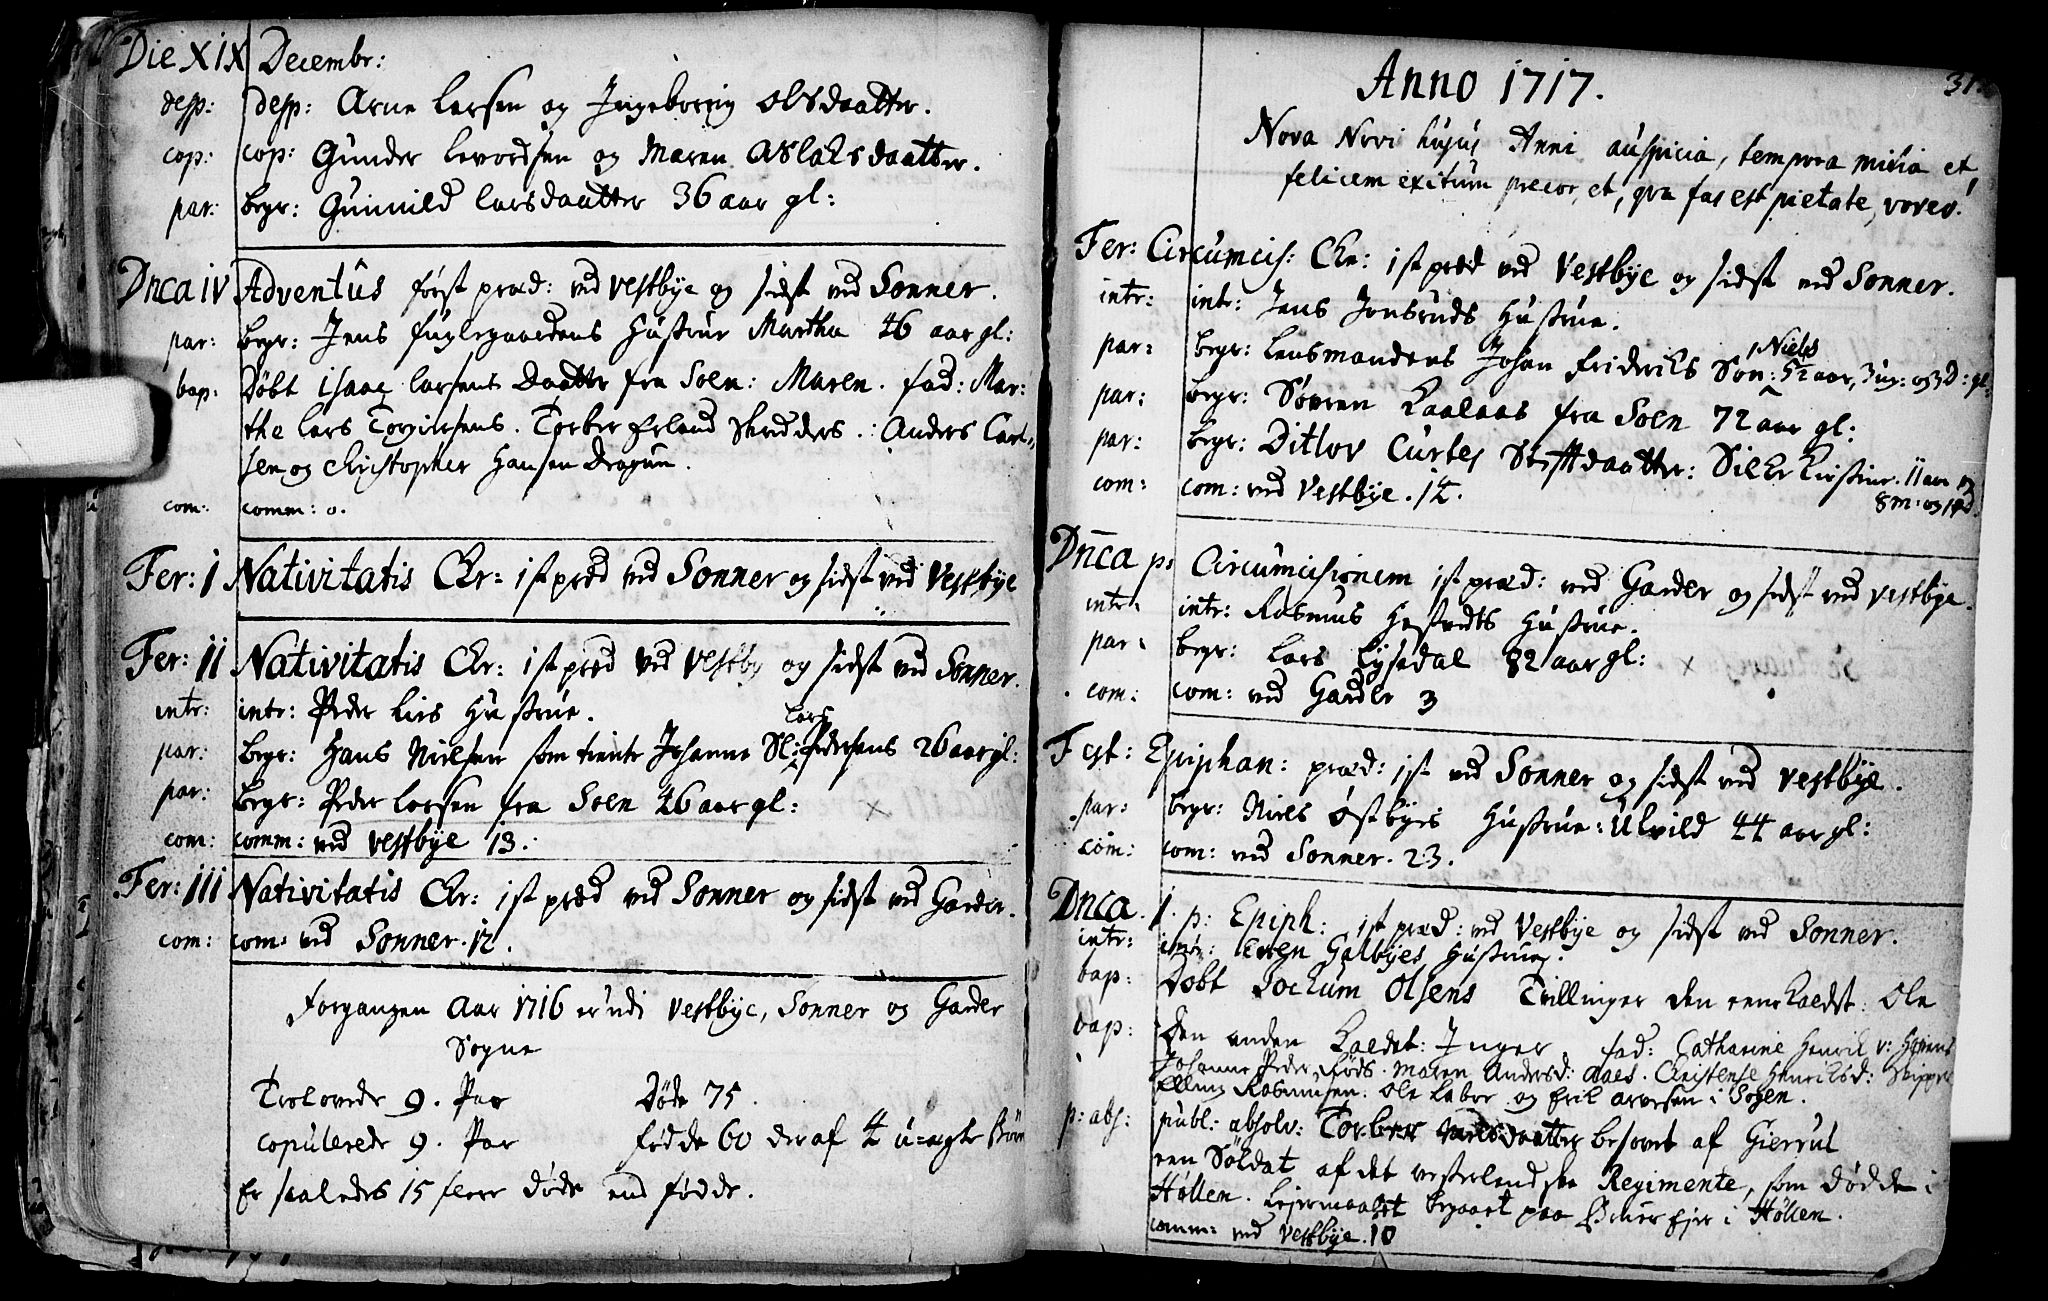 Die XIX Decembr:
desp: desp: Arne Larsen og Ingeborrig Olsdaatter.
cop: cop: Gunder Levordsen og Maren Aslaksdaatter.
par: begr: Gunnild Larsdaatter 36 aar gl:
Dnca IV Adventûs först præd: ved Vestbye og sidst ved Sonner.
par: begr: Jens fuglegaardens Hustrue Martha 46 aar gl:
bap: Döbt Isaac Larsens Daatter fra Soen: Maren. fad: Mar:
the Lars Torgiersens. Torber Erland Skredders.: Anders Carl=
sen og Christopher Hansen Dragun.
com: comm: 0.
Fer: I Nativitatis Chr: 1st præd ved Sonner og sidst ved Vestbye
Fer: II Nativitatis Chr: 1st præd ved Vestby og sidst ved Sonner.
intr: intr: Peder Lies Hustrue.
Lars
par: begr: Hans Nielsen som tiente Johanne Sl: Pedersens 26 aar gl:
par: begr: Peder Larsen fra Soen 46 aar gl:
com: comm: ved Vestbye 13.
Fer: III Nativitatis Chr: 1st præd ved Sonner og sidst ved Garder.
com: com: ved Sonner. 12.
Forgangen Aar 1716 er udi Vestbye, Sonner og Garder
Sogne
Trolovede 9. Par Döde 75.
Copulerede 9. Par födde 60 deraf 4 u=ægte Börn
Er saaledes 15 fleer döde end födde.
31.
Anno 1717.
Nova Novi hujus Anni auspicia, tempora mitia et,
felicem exitum precor, et, qva fas est pietate, voveo.
Fer: Circumcis: Chr: 1st præd ved Vestbye og sidst ved Sonner.
intr: intr: Jens Jonsruds Hustrue.
Niels
par: begr: Lensmandens Johan Fridericks Søn: 5½ aar, 3 ug: og 3 D: gl:
par: begr: Sövren Kaalaas fra Soen 72 aar gl:
par: begr: Ditlov Curtes Stiffdaatter: Silke Kirstine. 11 aar og
8 m: og 14 d.
com: com: ved Vestbye. 14.
Dnca p: Circumcisionem 1st præd: ved Garder og sidst ved Vestbye.
intr: intr: Rasmus Hestvedts Hustrue.
par: begr: Lars Lysedal 82 aar gl:
com: com: ved Garder 3
Fest: Epiphan: præd: 1st ved Sonner og sidst ved Vestbye.
par: begr: Niels Östbyes Hustrue: Ulvild 44 aar gl:
com: com: ved Sonner. 23.
Dnca. 1. p: Epiph: 1st præd: ved Vestbye og sidst ved Sonner.
intr: intr: Even Galbyes Hustrue.
bap: Döbt Jochum Olsens Tvillinger den eene kaldet: Ole
bap: den anden kaldet: Inger fad: Catharine Henrik v:
Johanne Peder Röds. Maren Andersd: Aaes. Christense Henriksd: Skipper
Elling Rasmusen. Ole Labor og Erik Arvesen i Sogen.
p: abs: publ: absolv: Torber Nielsdaatter besovet af
een Soldat af det vesterlendske Regimente, som dödde i
Höllen. Lejermaalet begaaet paa i Höllen.
comm: ved Vestbye. 10